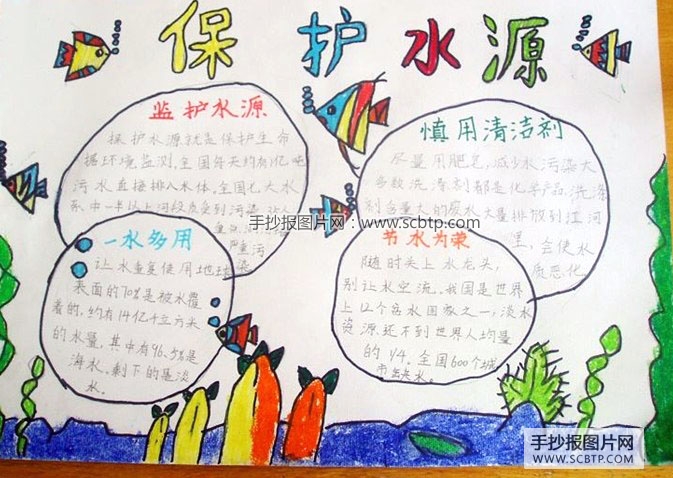 保护水源
监护水源
保护水源就是保护生命
据环境监测,全国每天约有1亿吨
污水直接排入水体.全国七大水
系中一半以上河段水质受到污染
慎用清洁剂
尽量用肥皂,减少水污染大
多数洗涤剂都是化学产品,洗涤
剂含量大的废水大量排放到江河
里,会使水
质恶化
手抄报图片网:www.scbtp.com
一水多用
让水重复使用地球
表面的70%是被水覆
盖的,约有14亿千立方米
的水量,其中有96.5%是
海水.剩下的是淡
水.
节水为荣
随时关上水龙头,
别让水空流.我国是世界
上12个贫水国家之一,淡水
资源还不到世界人均量
的1/4.全国600个城
市缺水.
手抄报图片网
WWW.SCBTP.COM